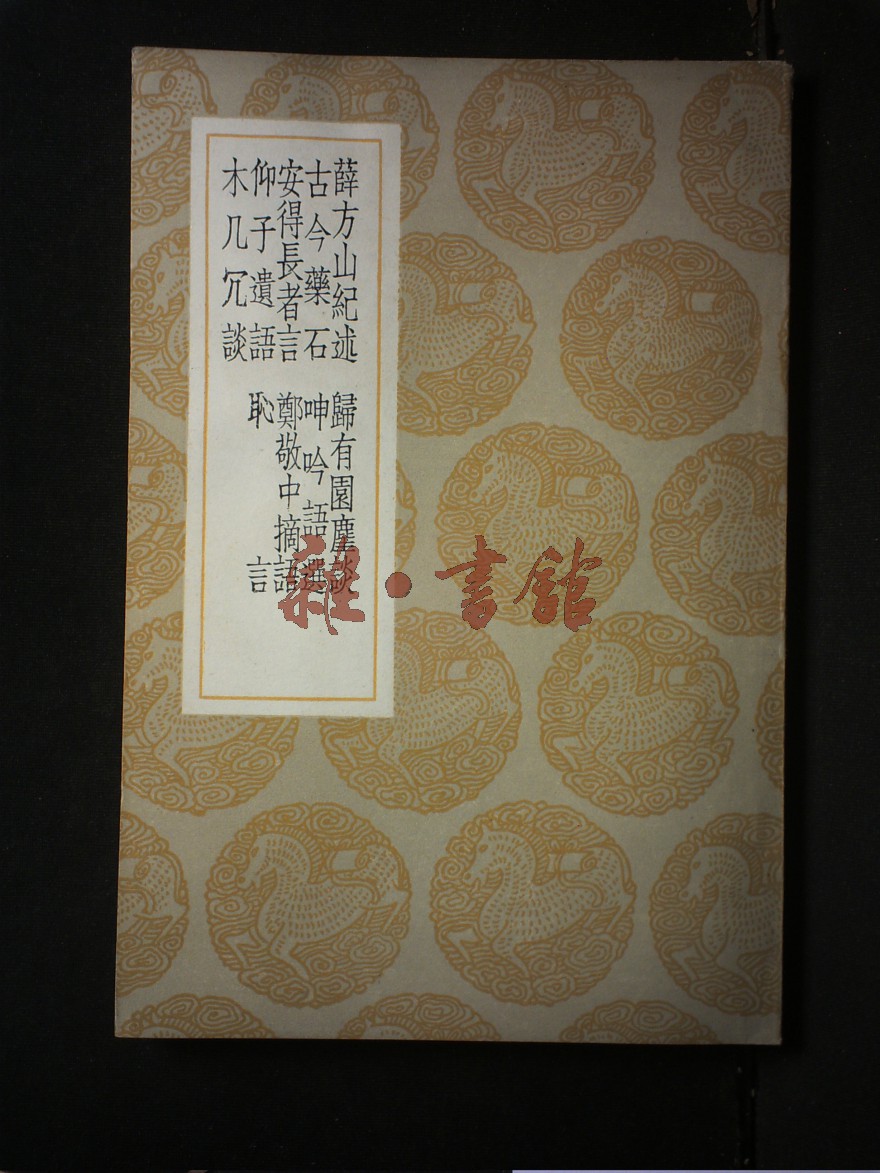 薛方山紀述　歸有園麈談
古今藥石　呻吟語選
安得長者言　鄭敬中摘語
仰子遺語　恥言
木几冗談
雜·書館